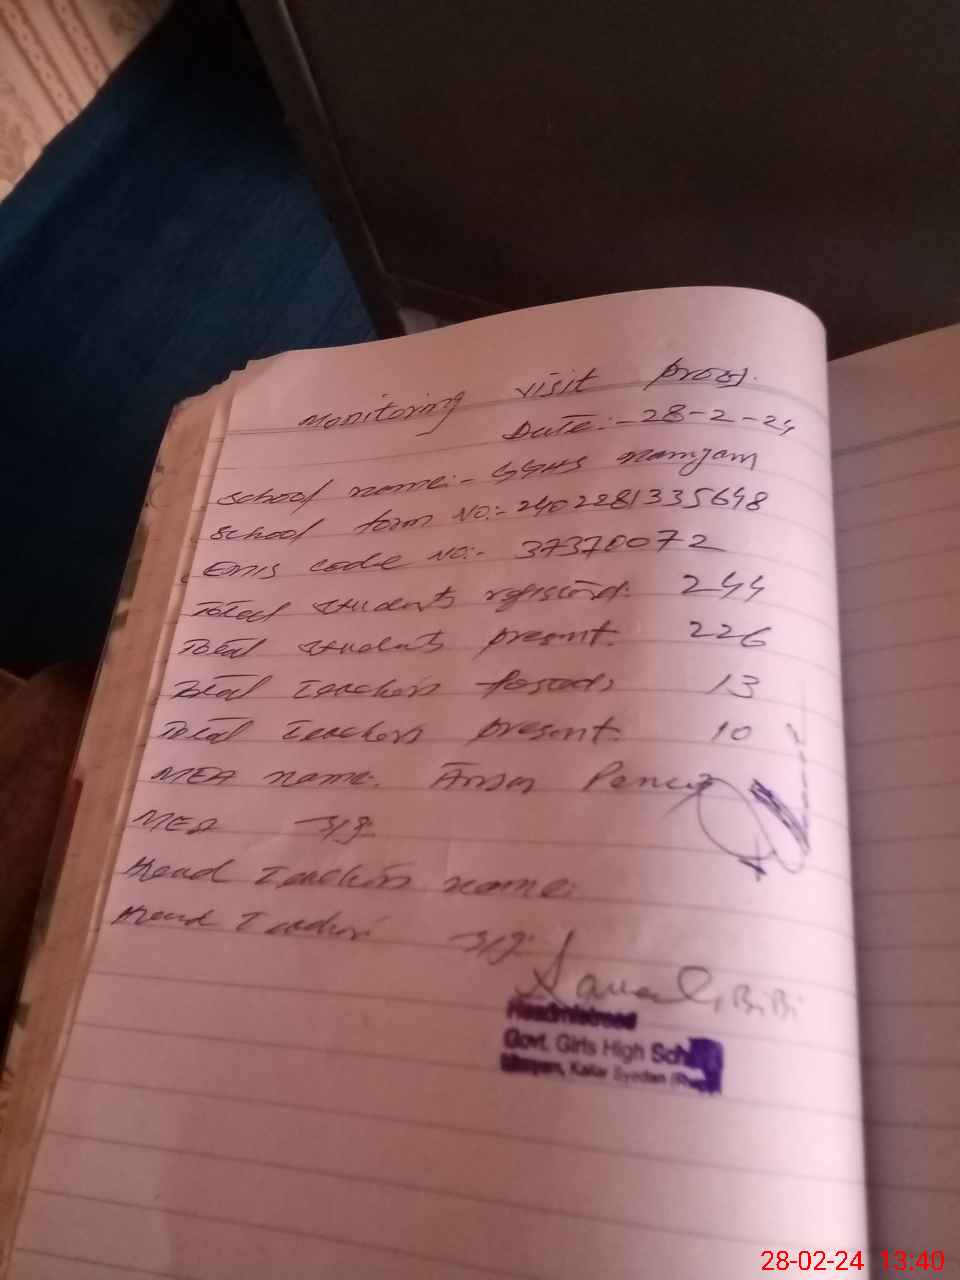 Monitoring visit proof.
Date:- 28-2-24
School name:- GGHS
School form No:- 2402281335648
EMIS code No:- 37370072
Total students registerd: 244
Total students present: 226
Total Teachers Posted: 13
Total Teachers present: 10
MEA name:
MEA sig
Head Teacher name:
Head Teacher sig:
Bibi
Headmistress
Govt. Girls High School
Kallar Syedan
28-02-24 13:40